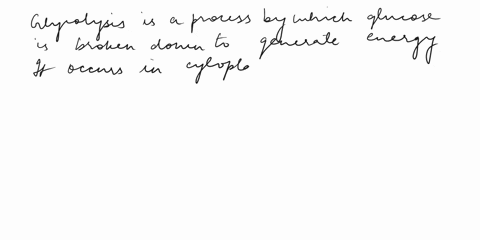 Glycolysis is a process by which glucose
is broken down to generate energy
It occurs in cytoplo